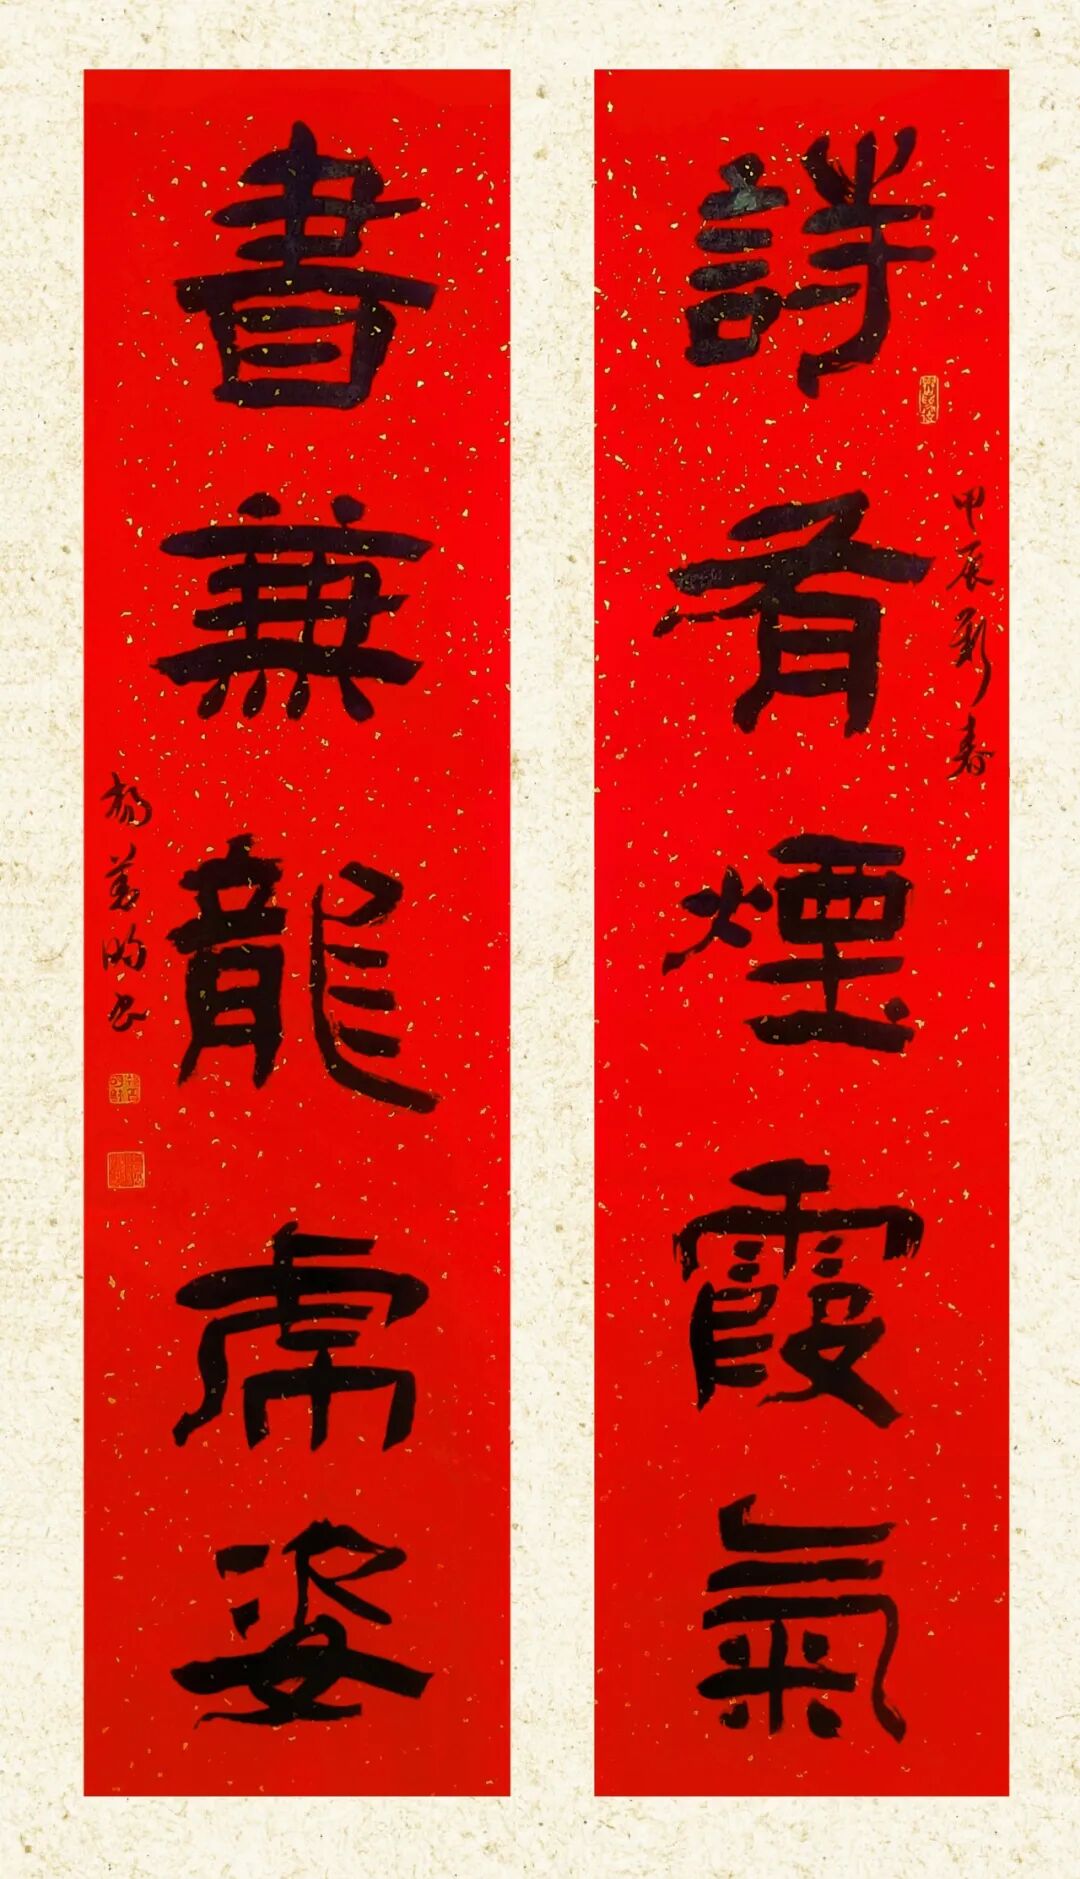 詩有煙霞氣
甲辰新春
書兼龍虎姿
楊
书